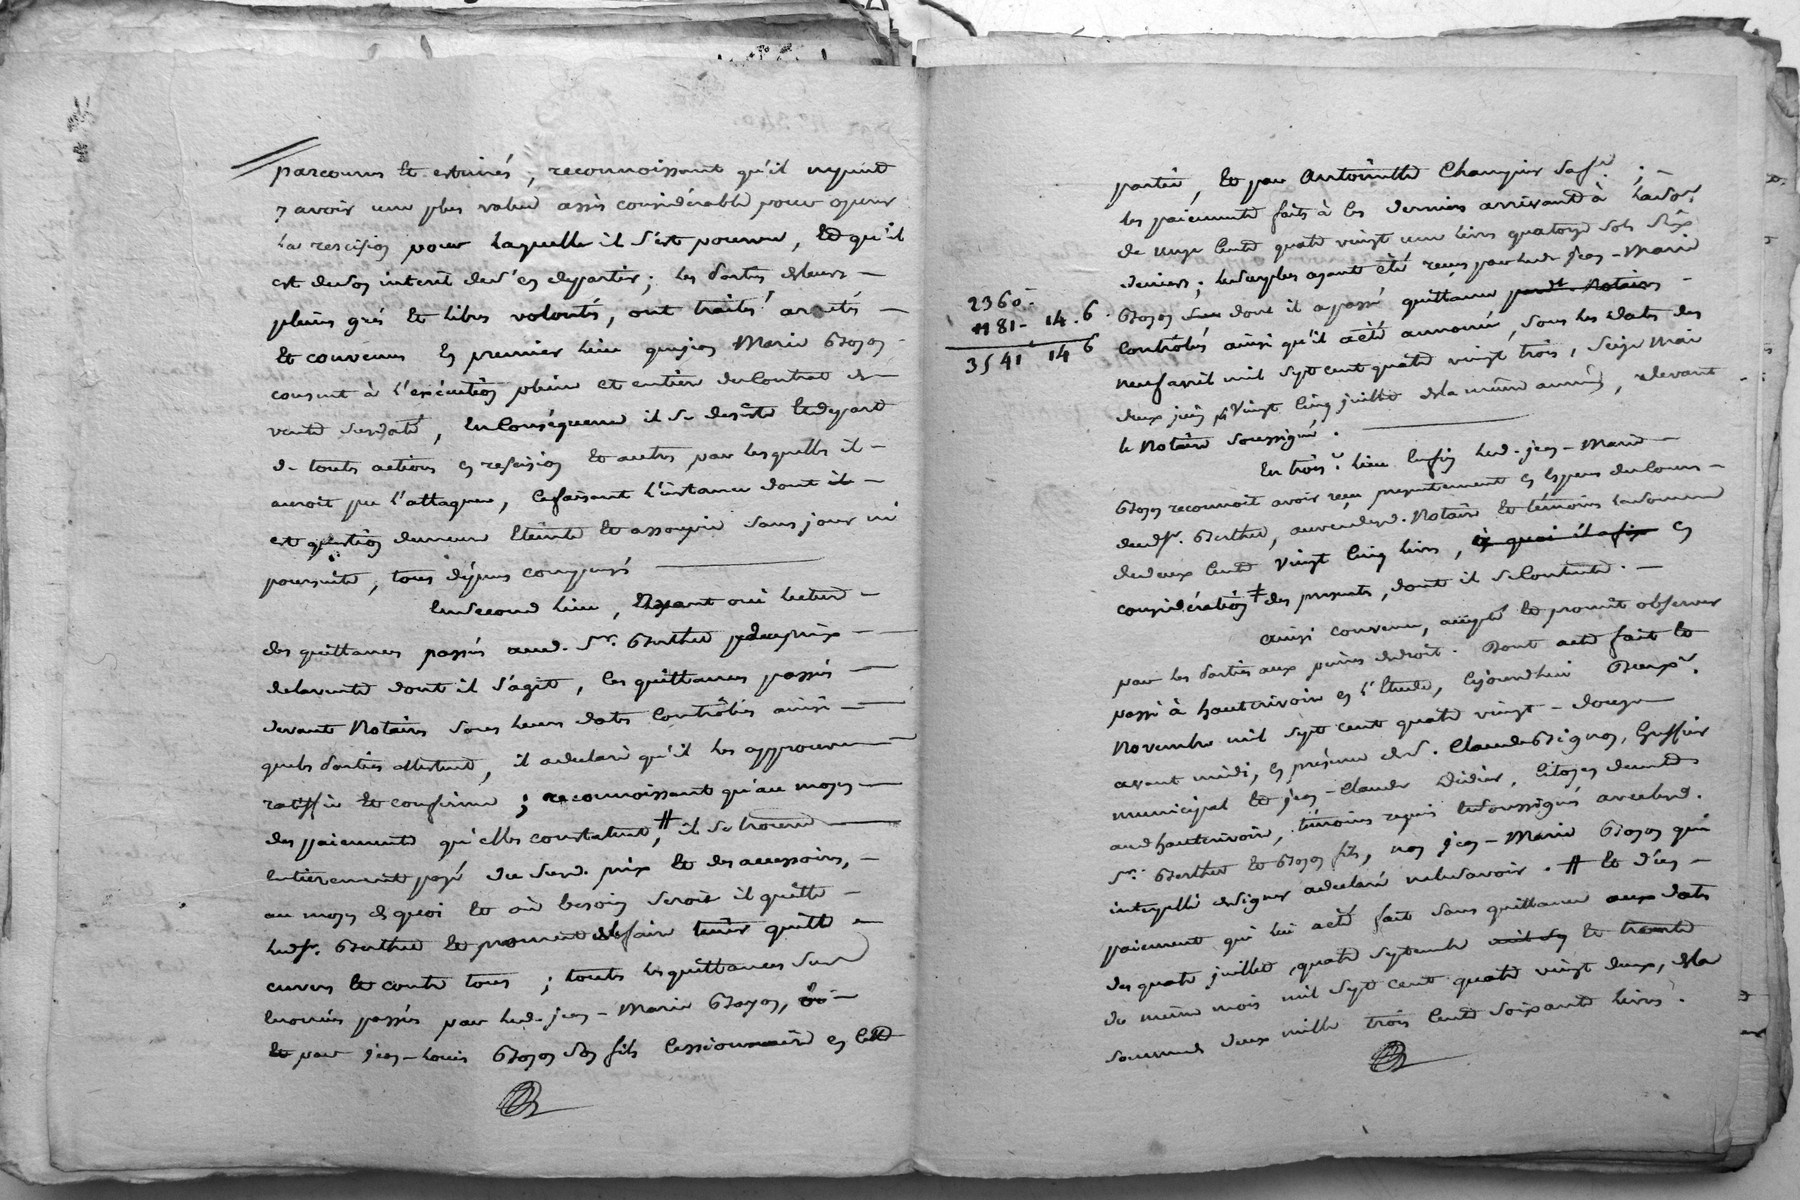 parcourus et estimés, reconnoissant qu'il ny peut
y avoir une plus value assés considérable pour operer
la rescision pour laquelle il s'est pourvu, et qu'il
est de son interit de s'en departir ; les parties de leurs
pleins grés et libres volontés, ont traité arrétés
et convenus en premier lieu que jean Marie Goyon
consent à l'exécution pleine et entiere du Contrat de
vente susdaté, en Conséquence il se desiste et depart
de toutes actions en rescision et autres par lesquelles il
auroit pu l'attaquer, ce faisant l'instance dont il
est question demeure éteinte et assoupie sans jour ni
poursuite, tous dépens compensés
En second lieu, ayant oui lecture
des quittances passés aud. Sr. Berthet du prix
de la vente dont il s'agit, les quittances passés
devant Notaires sous leurs dates Contrôlées ainsi
que les parties attestent, il a declaré qu'il les approuve
ratiffie et confirme ; reconnoissant qu'au moyen
des paiements qu'elles constatent, # il se trouve
entierement payé du susd. prix et des accessoires,
au moyen de quoi et où besoin seroit il quitte
led. Sr. Berthet et promet de le faire tenir quitte
envers et contre tous ; toutes les quittances sus
énoncées passés par led. jean-Marie Goyon,
et par jean-Louis Goyon son fils cessionnaire en cette
partie, et par Antoinette Champier sa fe. ;
les paiements faits à ces derniers arrivants à la so.e
de onze cents quatre vingt un livres quatorze sols six
deniers ; lesdites ayant été reçus par led. jean-Marie
2360-
1181- 14 . 6 .
3541 14 6
Goyon dont il a passé quittance pardt. Notaires
Contrôlés ainsi qu'il a été annoncé, sous les dates des
neuf avril mil sept cent quatre vingt trois, seize Mai
deux juin vingt cinq juillet de la même année, devant
le Notaire soussigné .
En trois.e lieu enfin led. jean-Marie
Goyon reconnoit avoir reçu presentement en Especes du Cours
dud. Sr. Berthet, au vu desd. Notaire et témoins la somme
de deux cents vingt cinq livres, à quoi il a fixé en
considération ‡ des presentes, dont il se Contente .
ainsi convenu, accepté et promit observer
par les parties aux peines de droit . Dont acte fait et
passé à hauterivoire en l'Etude, cejourd'hui
Novembre mil sept cent quatre vingt-douze
avant midi, en présence de S. Claude Bignon, Greffier
municipal et jean-Claude Didier, Citoyen demts
aud. hauterivoire, témoins requis et soussignés avec led.
Sr. Berthet et Goyon fils, non jean-Marie Goyon qui
interpellé de signer a declaré ne le savoir . # et d'un
paiement qui lui a été fait sous quittance aux dates
des quatre juillet, quatre septembre et trente
du même mois mil sept cent quatre vingt deux, de la
somme de deux mille trois cents soixante livres .